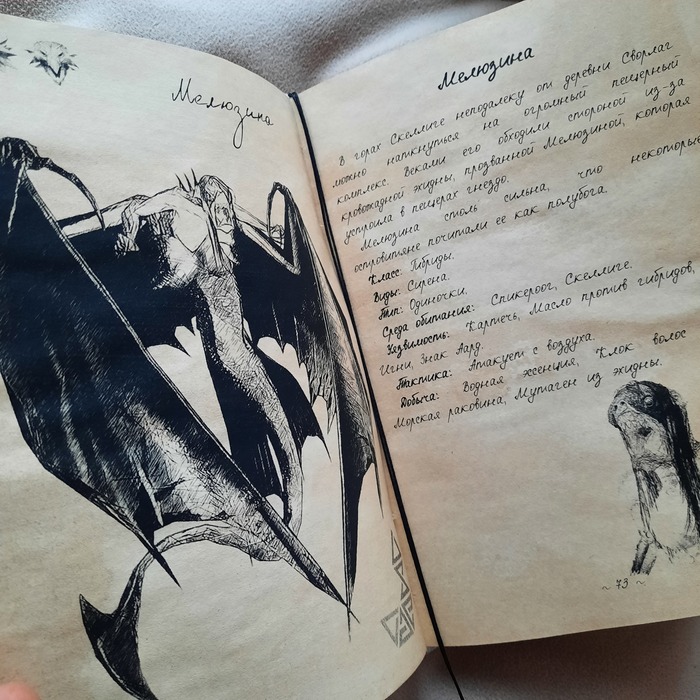 Мелюзина
Мелюзина
В горах Скеллиге неподалеку от деревни Сворлаг
можно наткнуться на огромный пещерный
комплекс. Веками его обходили стороной из-за
кровожадной ехидны, прозванной Мелюзиной, которая
устроила в пещерах гнездо.
Мелюзина столь сильна, что некоторые
островитяне почитали ее как полубога.
Класс: Гибриды.
Виды: Сирена.
Тип: Одиночки.
Среда обитания: Спикероог, Скеллиге.
Уязвимость: Картечь, Масло против гибридов,
Игни, Знак Аард.
Тактика: Атакует с воздуха.
Добыча: Водная эссенция, Клок волос
Морская раковина, Мутаген из ехидны.
~ 73 ~